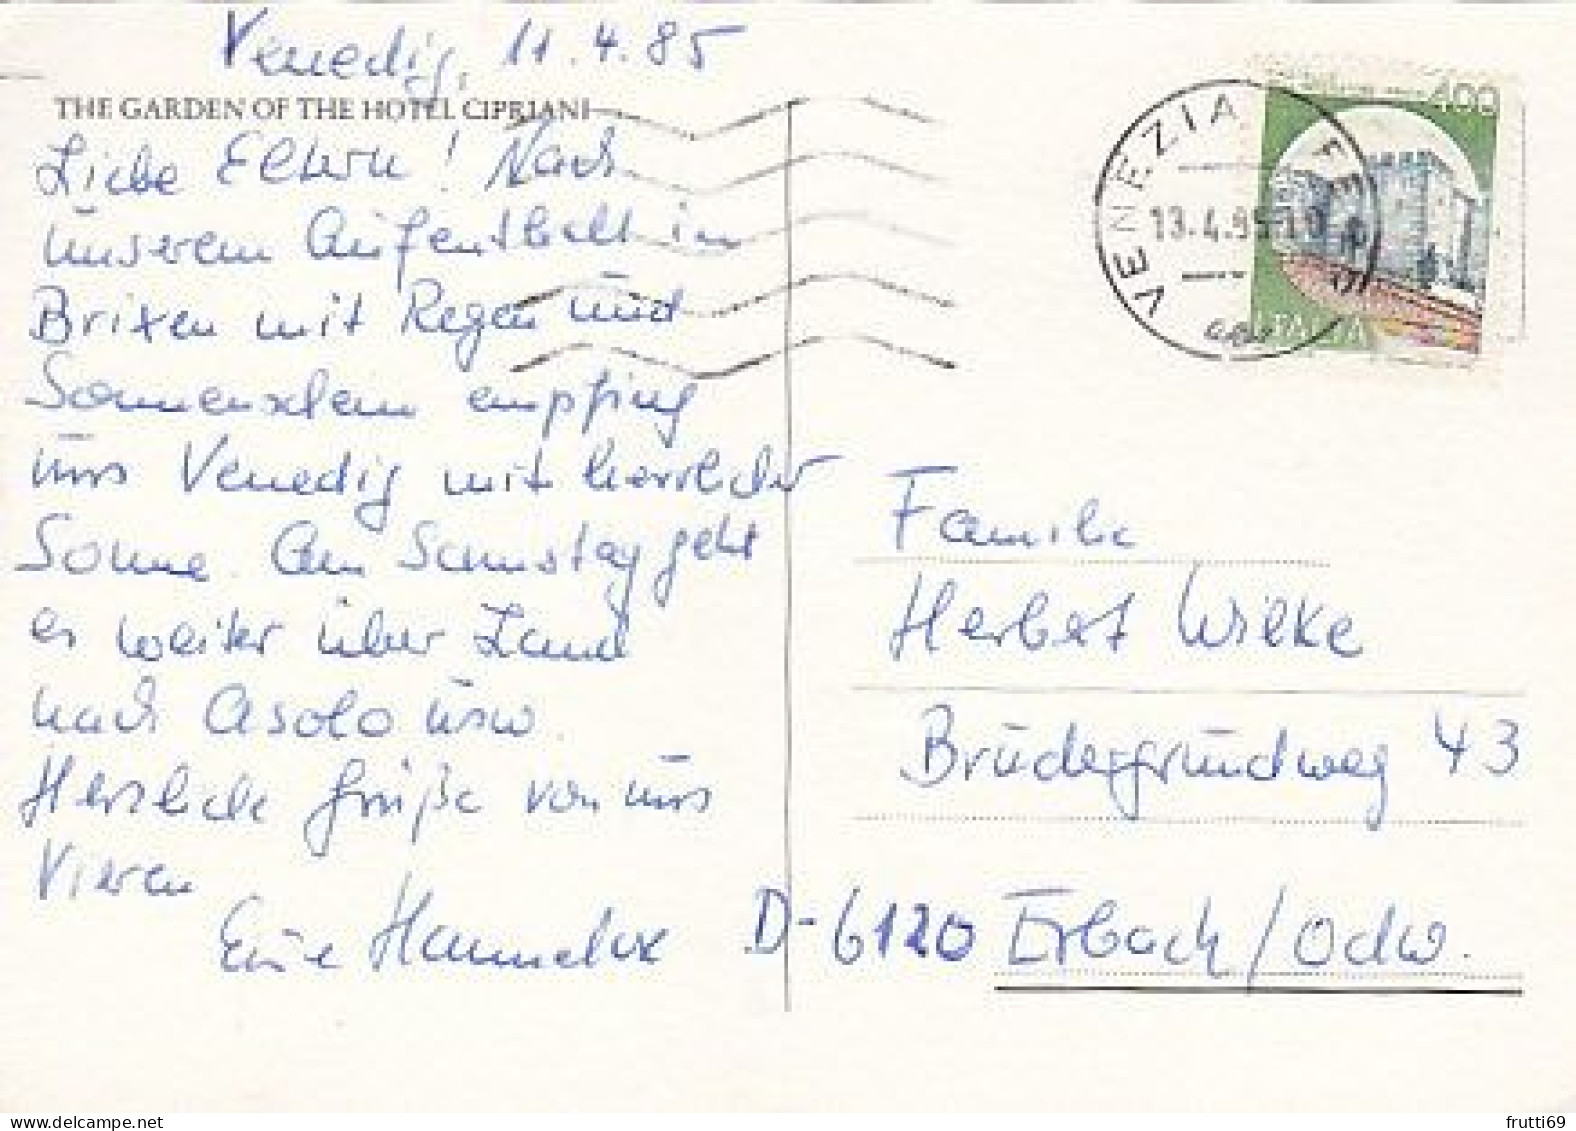 Venedig, 11.4.85
THE GARDEN OF THE HOTEL CIPRIANI
Liebe Eltern! Nach
unserem Aufenthalt in
Brixen mit Regen und
Sonnenschein empfing
uns Venedig mit herrlicher
Sonne. Am Samstag geht
es weiter über Land
nach Asolo usw.
Herzliche Grüße von uns
Vieren
Eure Hannelore
400
VENEZIA FERR
13.4.85-19
ITALIA
Familie
Herbert Wilke
Brudergrundweg 43
D-6120 Erbach/Odw.
frutti69